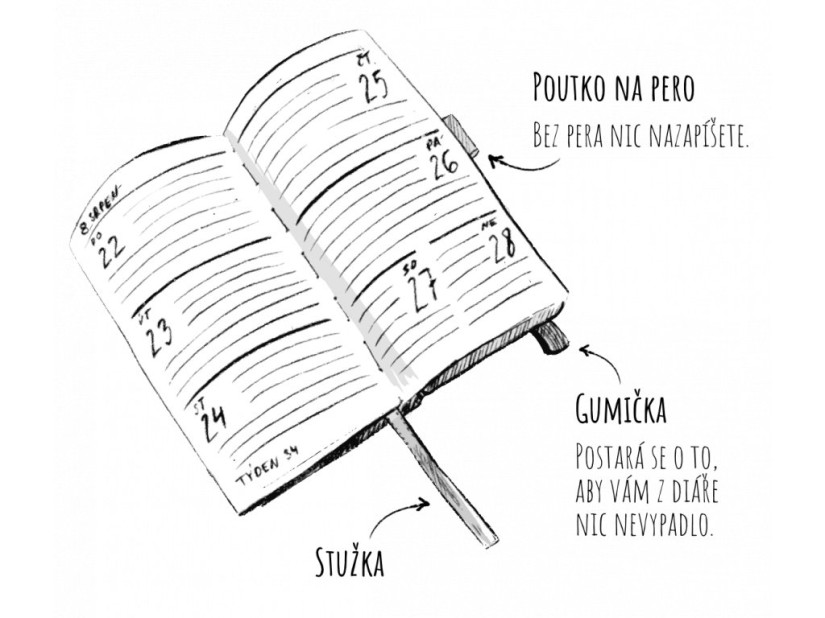 8. SRPEN
PO
22
ÚT
23
ST
24
TÝDEN 34
ČT.
25
PÁ
26
SO
27
NE
28
POUTKO NA PERO
BEZ PERA NIC NAZAPÍŠETE.
GUMIČKA
POSTARÁ SE O TO,
ABY VÁM Z DIÁŘE
NIC NEVYPADLO.
STUŽKA